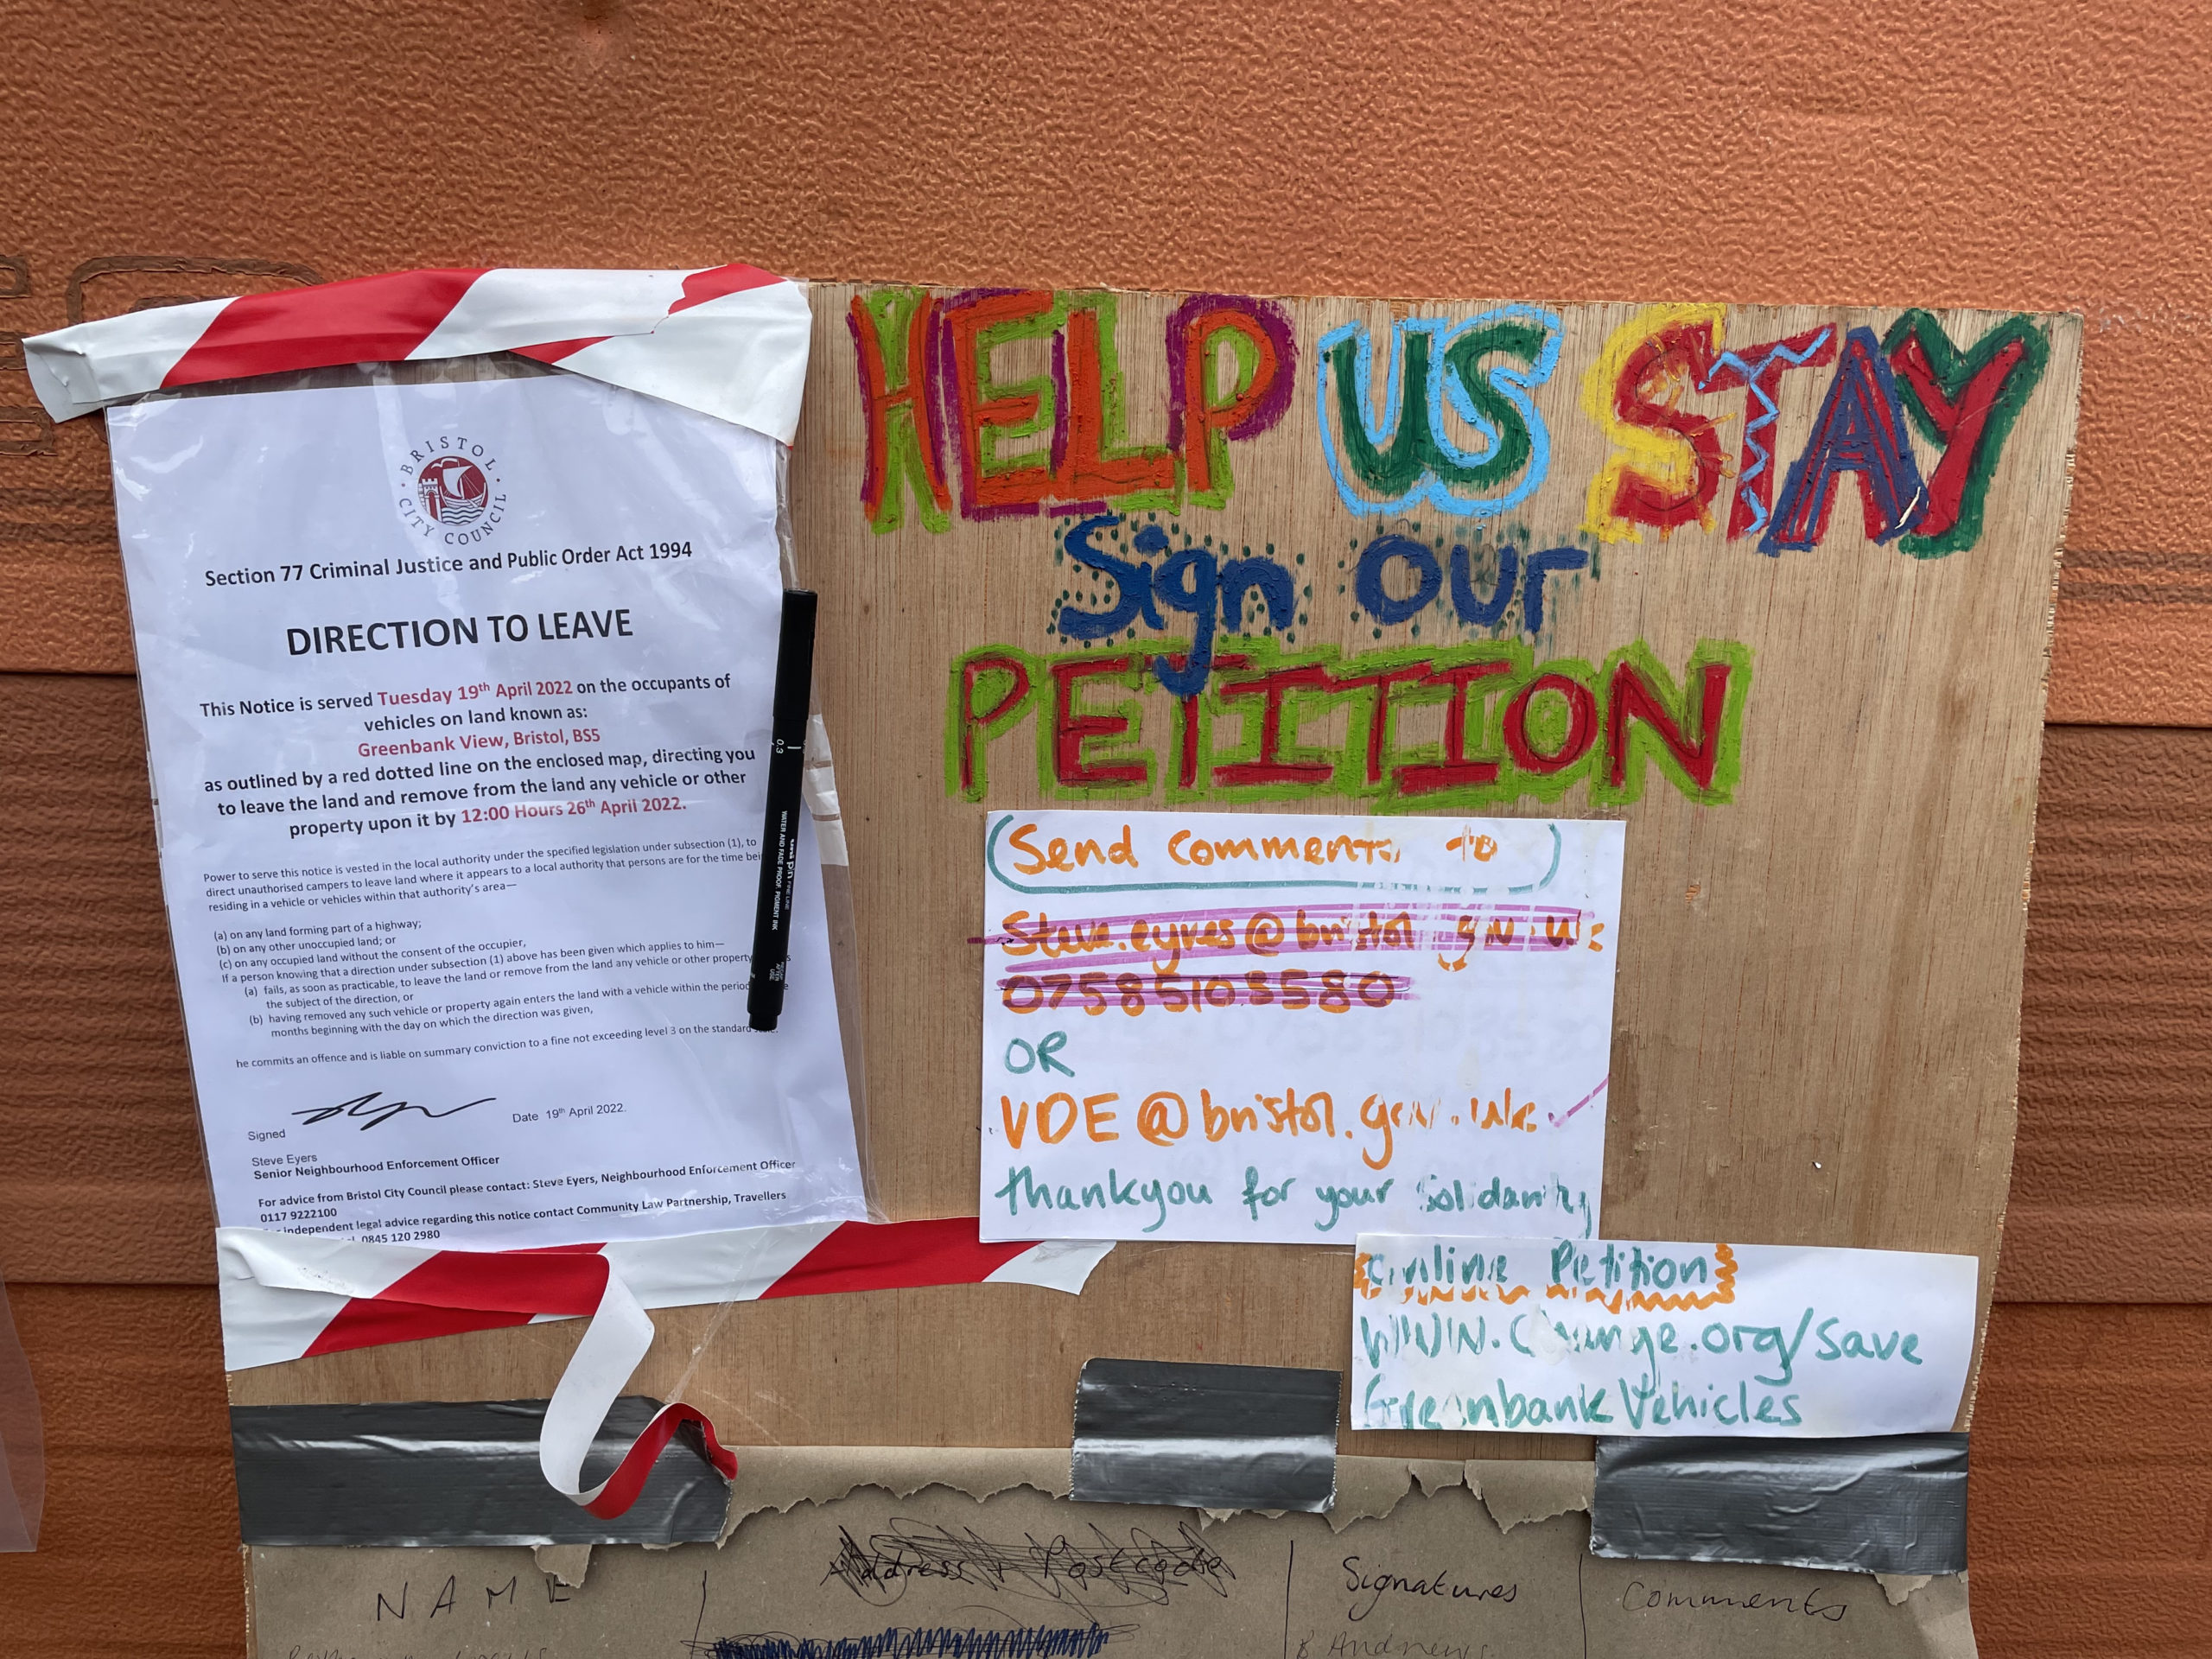 BRISTOL CITY COUNCIL
Section 77 Criminal Justice and Public Order Act 1994
DIRECTION TO LEAVE
This Notice is served Tuesday 19th April 2022 on the occupants of
vehicles on land known as:
Greenbank View, Bristol, BS5
as outlined by a red dotted line on the enclosed map, directing you
to leave the land and remove from the land any vehicle or other
property upon it by 12:00 Hours 26th April 2022.
Power to serve this notice is vested in the local authority under the specified legislation under subsection (1), to
direct unauthorised campers to leave land where it appears to a local authority that persons are for the time bei
residing in a vehicle or vehicles within that authority's area—
(a) on any land forming part of a highway;
(b) on any other unoccupied land; or
(c) on any occupied land without the consent of the occupier,
If a person knowing that a direction under subsection (1) above has been given which applies to him—
(a) fails, as soon as practicable, to leave the land or remove from the land any vehicle or other property
the subject of the direction, or
(b) having removed any such vehicle or property again enters the land with a vehicle within the period
months beginning with the day on which the direction was given,
he commits an offence and is liable on summary conviction to a fine not exceeding level 3 on the standard
Signed
Date 19th April 2022.
Steve Eyers
Senior Neighbourhood Enforcement Officer
For advice from Bristol City Council please contact: Steve Eyers, Neighbourhood Enforcement Officer
0117 9222100
independent legal advice regarding this notice contact Community Law Partnership, Travellers
0845 120 2980
0.3
uni pin FINE LINE
WATER AND FADE PROOF, PIGMENT INK
HELP US STAY
Sign our
PETITION
Send Comments to
Steve.eyres@bristol.gov.uk
07585103580
OR
VDE@bristol.gov.uk
thankyou for your Solidarity
Online Petition
WWW.Change.org/Save
Greenbank Vehicles
NAME
Address + Postcode
Signatures
Comments
B Andrews